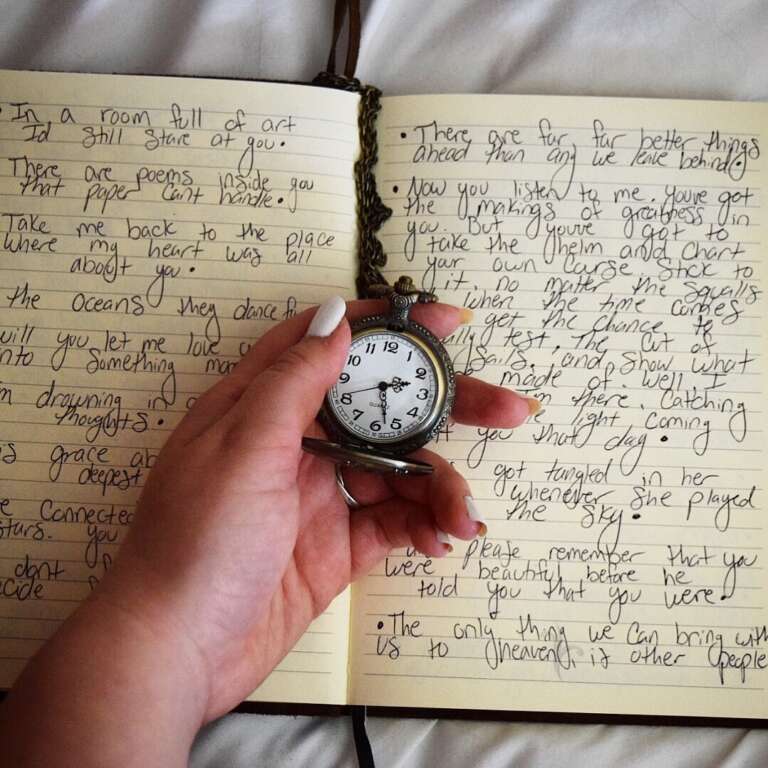 • In a room full of art
Id still stare at you.
There are poems inside you
that paper cant handle.
Take me back to the place
where my heart was all
about you.
the oceans they dance
will you let me love
into something
drowning in
thoughts.
grace
deepest
connected
stars. you
dont
• There are far, far better things
ahead than any we leave behind.
• Now you listen to me. youve got
the makings of greatness in
you. But youve got to
take the helm and chart
your own curse. Stick to
it, no mater the squalls
when the time comes
get the chance to
test, the cut of
sails, and show what
made of. well, I
I'm there. Catching
light coming
you that day.
got tangled in her
whenever she played
the sky.
please remember that you
were beautiful before he
told you that you were.
• The only thing we can bring with
us to heaven, is other people
12
1
2
3
4
5
6
7
8
9
10
11
QUARTZ